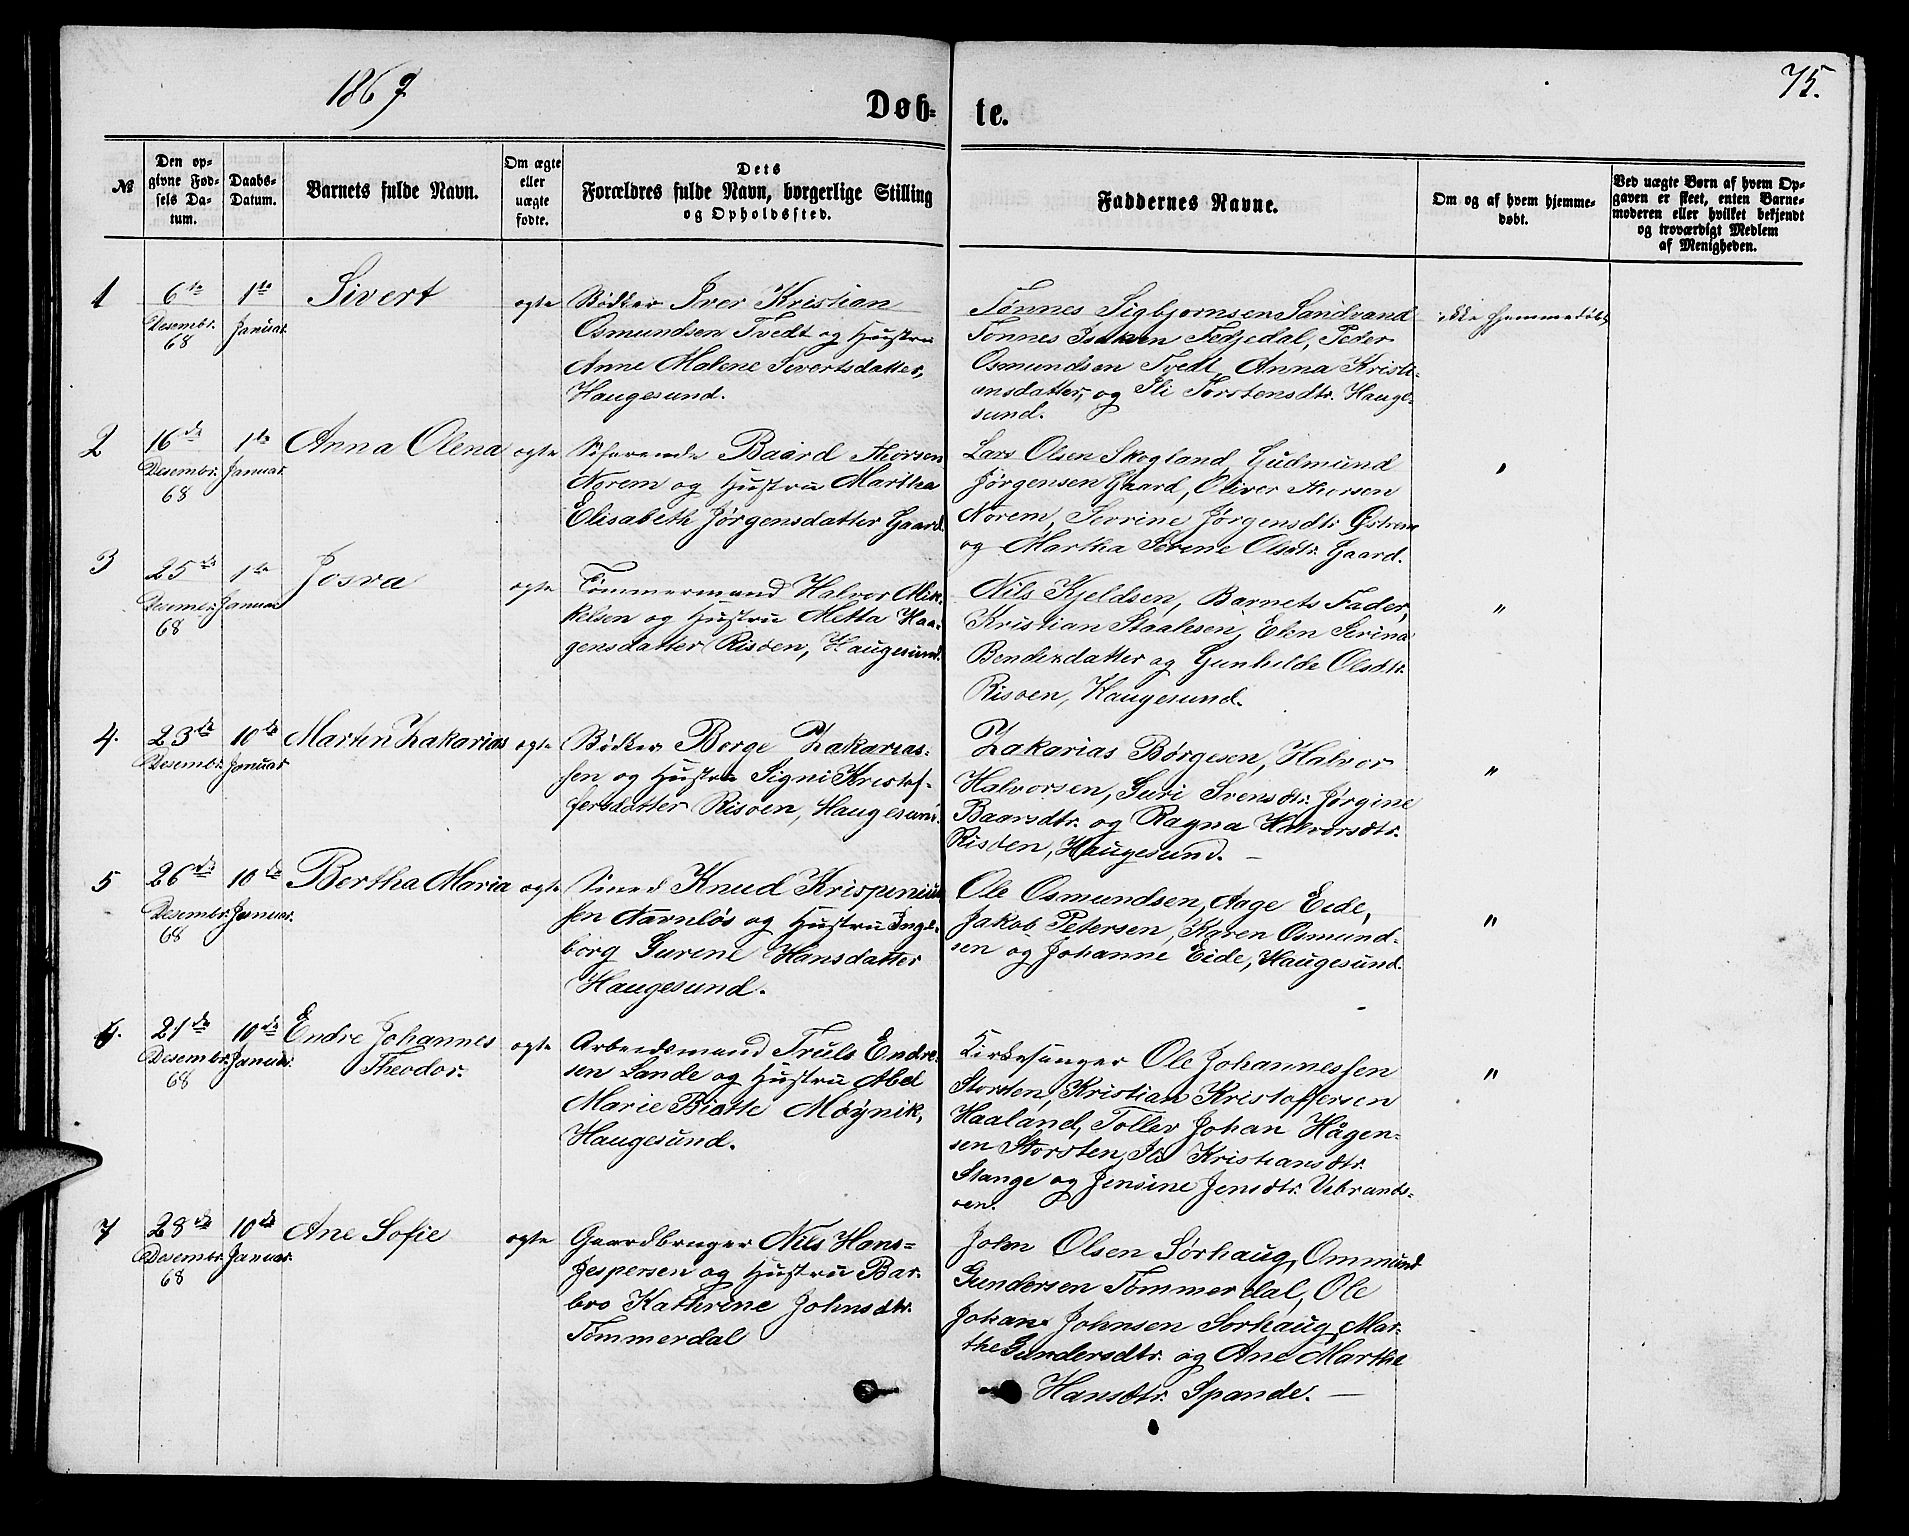 1869
75.
Døb- te.
№
Den opgivne Fødsels Datum.
Daabs-Datum.
Barnets fulde Navn.
Om ægte eller uægte fødte.
Dets Forældres fulde Navn, borgerlige Stilling og Opholdssted.
Faddernes Navne.
Om og af hvem hjemmedøbt.
Ved uægte Børn af hvem Opgaven er skeet, enten Barnemoderen eller hvilket bekjendt og troværdigt Medlem af Menigheden.
1
6te Desembr. 68
1ste Januar.
Sivert
ægte
Bødker Iver Kristian
Osmundsen Tvedt og Hustru
Anne Malene Sivertsdatter,
Haugesund.
Tønnes Sigbjørnsen Sandvand
Tønnes Isaksen Fedjedal, Peder
Osmundsen Tvedt, Anna Kristi-
ansdatter, og Sli Torstensdtr. Hauge-
sund.
ikke hjemmedøbt
2
16de Desembr. 68
1ste Januar.
Anna Olena
ægte
Søfarende Baard Thorsen
Norem og Hustru Martha
Elisabeth Jørgensdatter Gaard.
Lars Olsen Skogland, Gudmund
Jørgensen Gaard, Oliver Thorsen
Norem, Serrine Jørgensdtr. Østrem
og Martha Serene Olsdtr. Gaard.
"
3
25de Desember 68
1ste Januar
Josva
ægte
Tømmermand Halvor Mik-
kelsen og Hustru Metta Haa-
gensdatter Risøen, Haugesund.
Nils Kjeldsen, Barnets Fader,
Kristian Staalesen, Elen Serina
Bendixdatter og Gunhilde Olsdtr.
Risøen, Haugesund.
"
4.
23de Desembr.
10de Januar
Martin Zakarias
ægte
Bødker Børge Zakarias-
sen og Hustru Signi Kristof-
fersdatter Risøen, Haugesund.
Zakarias Børgesen, Halvor
Halvorsen, Guri Svensdtr. Jørgine
Baarsdtr. og Ragna Halvorsdtr.
Risøen, Haugesund. —
"
5
26de Desembr. 68
10de Januar.
Bertha Maria
ægte
Smed Knud Krispinius-
sen Aarnløs og Hustru Inge-
borg Gurene Hansdatter
Haugesund.
Ole Osmundsen, Aage Eide,
Jakob Petersen, Karen Osmund-
sen og Johanne Eide, Haugesund.
"
6.
21de Desembr. 68
10de Januar.
Endre Johannes
Theodor.
ægte
Arbeidsmand Truls Endre-
sen Sande og Hustru Abel
Marie Biatte Møynik,
Haugesund.
Kirkesanger Ole Johannessen
Storsten, Kristian Kristoffersen
Haaland, Toller Johan Hågen-
sen Storsten, Sli Kristiansdtr.
Stange og Jensine Jensdtr. Vibrands-
øen.
"
7
28de Desembr. 68
10de Januar.
Ane Sofie
ægte
Gaardbruger Nils Hans-
Jespersen og Hustru Bar-
bro Kathrine Johnsdtr.
Tømmerdal
John Olsen Sørhaug, Ommund
Gundersen Tømmerdal, Ole
Johan Johnsen Sørhaug, Mar-
the Gundersdtr. og Ane Marthe
Hansdtr. Spande. —